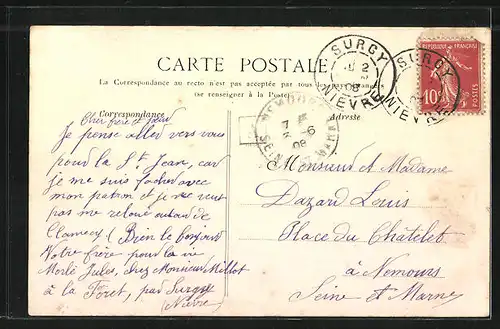 CARTE POSTALE
La Correspondance au recto n'est pas acceptée par tous les pays étrangers
(se renseigner à la Poste)
Correspondance
Adresse
Cher frère et Sœur
Je pense aller vers vous
pour la St Jean, car
je me suis facher avec
mon patron et je veut
pas me reloué autour de
Clamecy. Bien le bonjour
Votre frère pour la vie
Merlé Jules, chez Monsieur Millot
à la Foret, par Surgy
(Nièvre)
Monsieur et Madame
Dazard Louis
Place du Chatelet
à Nemours
Seine et Marne
SURGY
NIÈVRE
SURGY
NIÈVRE
NEMOURS
7 E
6
08
SEINE MARNE
REPUBLIQUE FRANÇAISE
10
POSTES